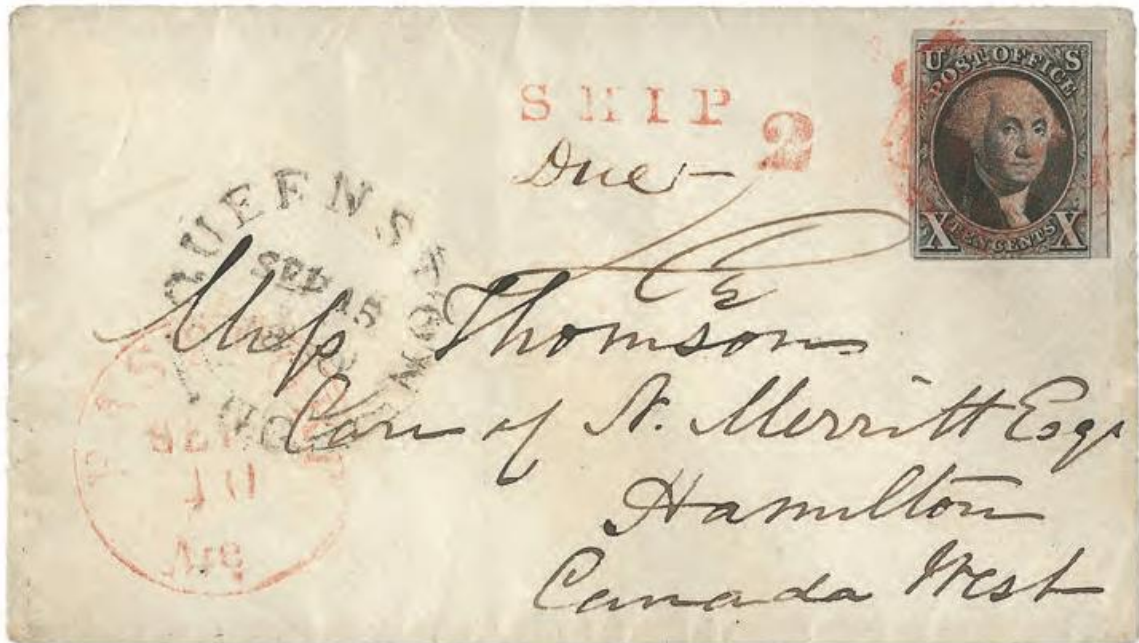 U S
POST OFFICE
X TEN CENTS X
SHIP
2
Due
QUEENSTON
SEP 15
Miss Thomson
Care of N. Merritt Esqr
SEP
10
Hamilton
Canada West